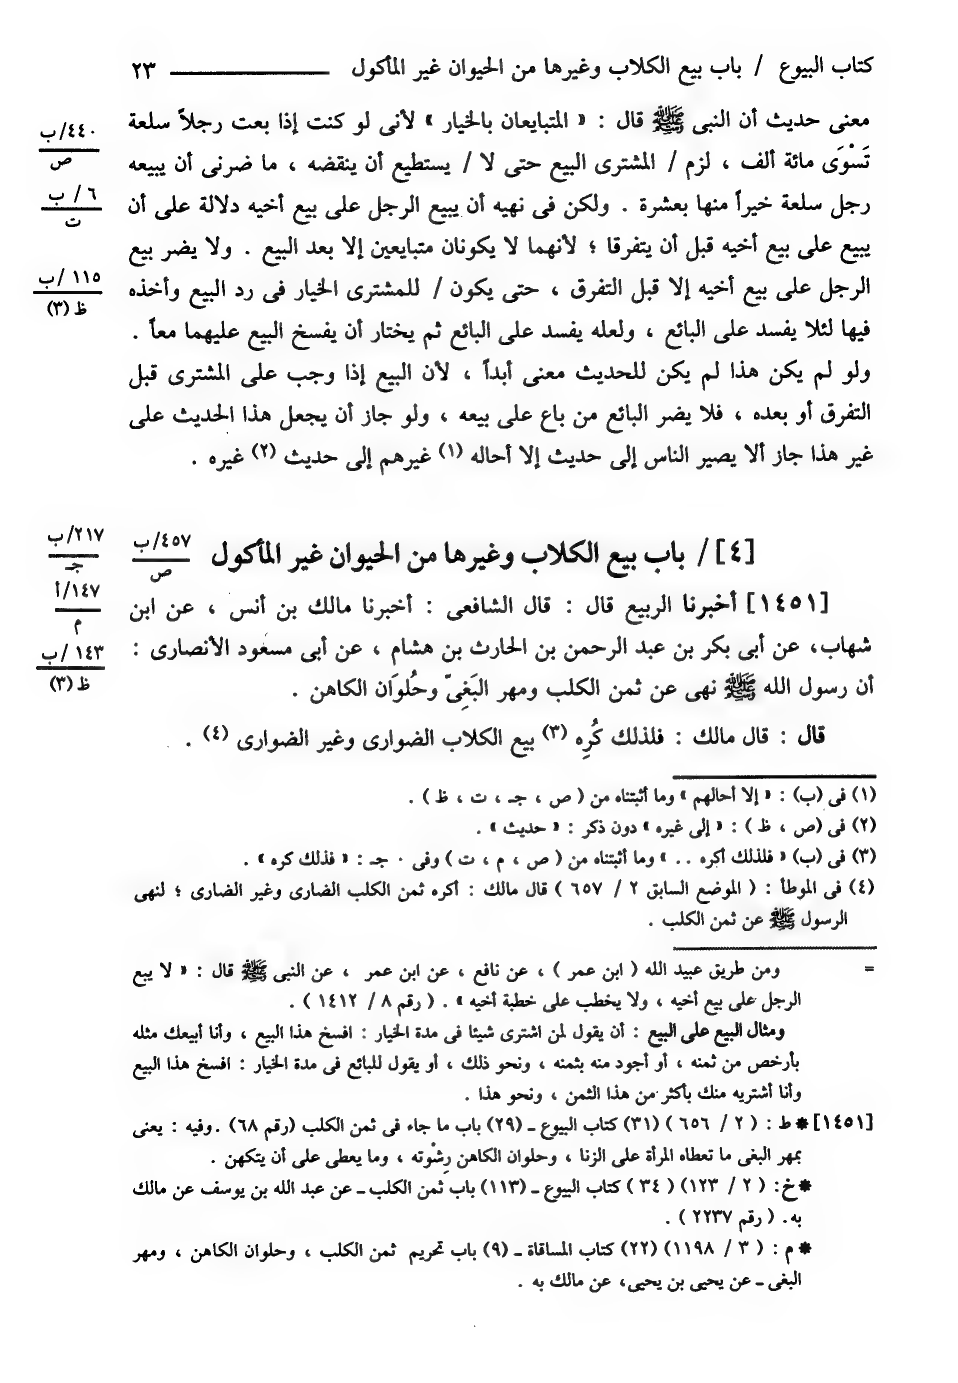 كتاب البيوع / باب بيع الكلاب وغيرها من الحيوان غير المأكول ــــــــــــ ٢٣
معنى حديث أن النبى ﷺ قال : « المتبايعان بالخيار » لأنى لو كنت إذا بعت رجلاً سلعة
تَسْوَى مائة ألف ، لزم / المشترى البيع حتى لا / يستطيع أن ينقضه ، ما ضرنى أن يبيعه
رجل سلعة خيراً منها بعشرة . ولكن فى نهيه أن يبيع الرجل على بيع أخيه دلالة على أن
يبيع على بيع أخيه قبل أن يتفرقا ؛ لأنهما لا يكونان متبايعين إلا بعد البيع . ولا يضر بيع
الرجل على بيع أخيه إلا قبل التفرق ، حتى يكون / للمشترى الخيار فى رد البيع وأخذه
فيها لئلا يفسد على البائع ، ولعله يفسد على البائع ثم يختار أن يفسخ البيع عليهما معاً .
ولو لم يكن هذا لم يكن للحديث معنى أبداً ، لأن البيع إذا وجب على المشترى قبل
التفرق أو بعده ، فلا يضر البائع من باع على بيعه ، ولو جاز أن يجعل هذا الحديث على
غير هذا جاز ألا يصير الناس إلى حديث إلا أحاله (١) غيرهم إلى حديث (٢) غيره .
٤٤٠/ب
ص
٦ / ب
ت
١١٥ /ب
ظ (٣)
[٤] / باب بيع الكلاب وغيرها من الحيوان غير المأكول
٤٥٧/ب
ص
٢١٧/ب
جـ
١٤٧/أ
م
١٤٣ /ب
ظ (٣)
[١٤٥١] أخبرنا الربيع قال : قال الشافعى : أخبرنا مالك بن أنس ، عن ابن
شهاب، عن أبى بكر بن عبد الرحمن بن الحارث بن هشام ، عن أبى مسعود الأنصارى :
أن رسول الله ﷺ نهى عن ثمن الكلب ومهر البَغِىّ وحُلْوَان الكاهن .
قال : قال مالك : فلذلك كُرِه (٣) بيع الكلاب الضوارى وغير الضوارى (٤) .
(١) فى (ب) : « إلا أحالهم » وما أثبتناه من ( ص ، جـ ، ت ، ظ ) .
(٢) فى (ص ، ظ ) : « إلى غيره » دون ذكر : « حديث » .
(٣) فى (ب) « فلذلك أكره .. » وما أثبتناه من ( ص ، م ، ت ) وفى جـ : « فذلك كره » .
(٤) فى الموطأ : ( الموضع السابق ٢ / ٦٥٧ ) قال مالك : أكره ثمن الكلب الضارى وغير الضارى ؛ لنهى
الرسول ﷺ عن ثمن الكلب .
= ومن طريق عبيد الله ( ابن عمر ) ، عن نافع ، عن ابن عمر ، عن النبى ﷺ قال : « لا يبع
الرجل على بيع أخيه ، ولا يخطب على خطبة أخيه » . ( رقم ٨ / ١٤١٢ ) .
ومثال البيع على البيع : أن يقول لمن اشترى شيئا فى مدة الخيار : افسخ هذا البيع ، وأنا أبيعك مثله
بأرخص من ثمنه ، أو أجود منه بثمنه ، ونحو ذلك ، أو يقول للبائع فى مدة الخيار : افسخ هذا البيع
وأنا أشتريه منك بأكثر من هذا الثمن ، ونحو هذا .
[١٤٥١] * ط : ( ٢ / ٦٥٦ ) (٣١) كتاب البيوع ــ (٢٩) باب ما جاء فى ثمن الكلب (رقم ٦٨) . وفيه : يعنى
بمهر البغى ما تعطاه المرأة على الزنا ، وحلوان الكاهن رِشْوته ، وما يعطى على أن يتكهن .
* خ : ( ٢ / ١٢٣) ( ٣٤ ) كتاب البيوع ــ (١١٣) باب ثمن الكلب ــ عن عبد الله بن يوسف عن مالك
به . ( رقم ٢٢٣٧ ) .
* م : ( ٣ / ١١٩٨) (٢٢) كتاب المساقاة ــ (٩) باب تحريم ثمن الكلب ، وحلوان الكاهن ، ومهر
البغى ــ عن يحيى بن يحيى، عن مالك به .